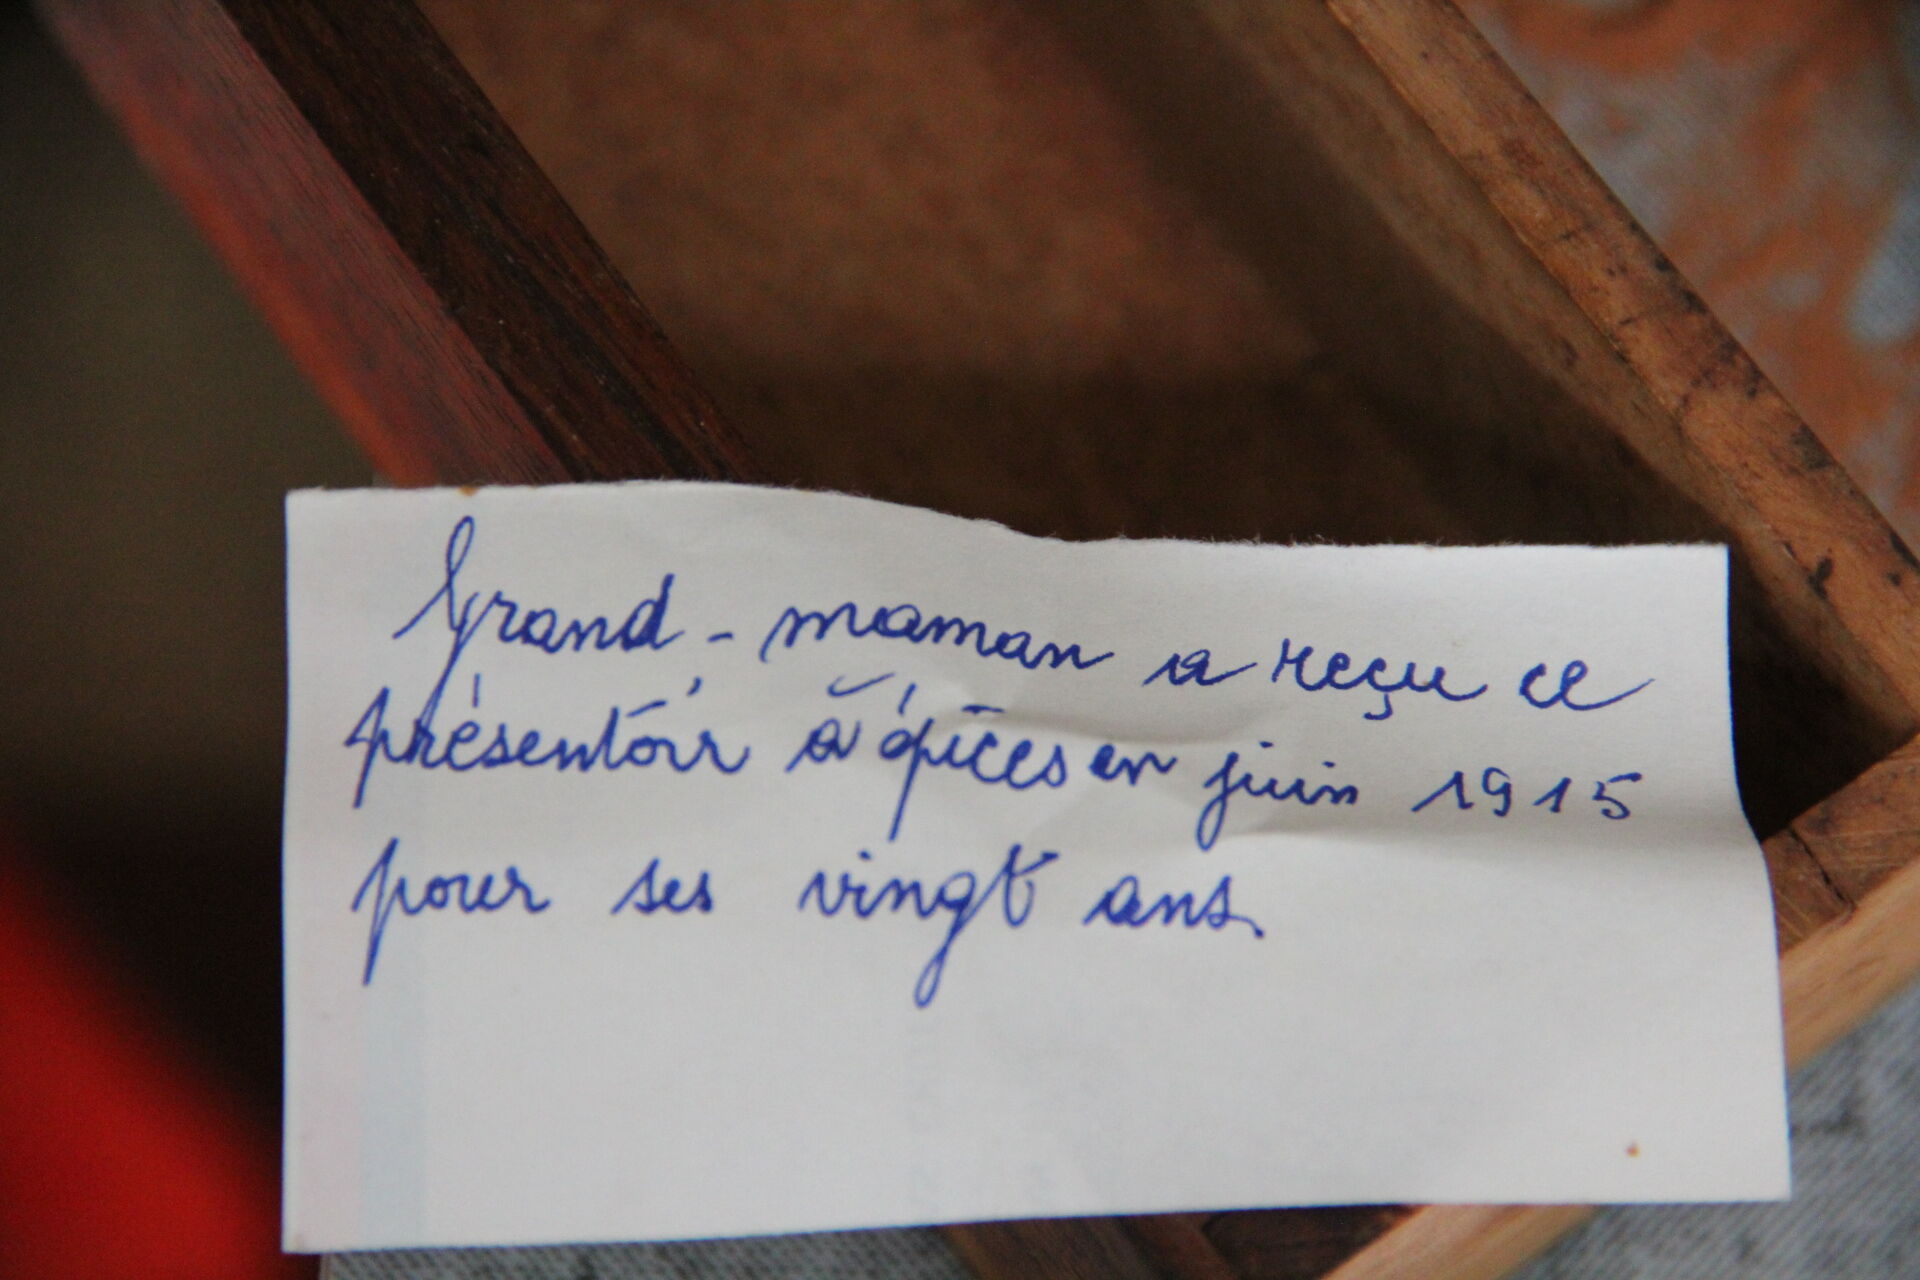 Grand-maman a reçu ce
présentoir à épices en juin 1915
pour ses vingt ans.